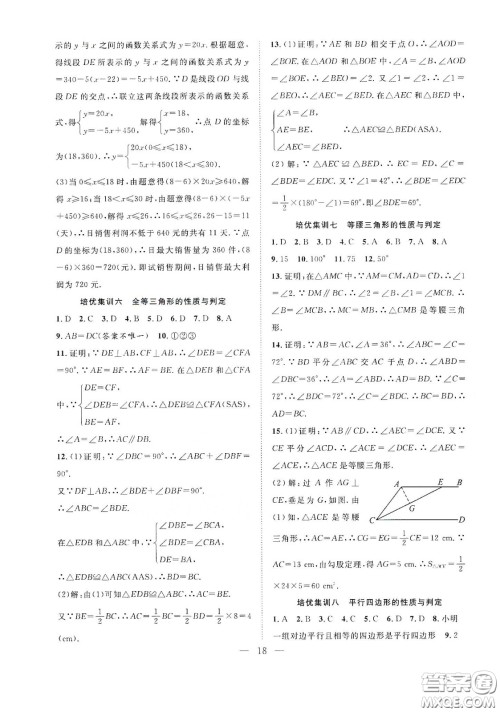 示的 y 与 x 之间的函数关系式为 y=20x. 根据题意,
得线段 DE 所表示的 y 与 x 之间的函数关系式为
y=340-5(x-22)=-5x+450. ∵D 是线段 OD 与
线段 DE 的交点,∴联立这两条线段所表示的函数关系
式,得{y=20x, y=-5x+450, 解得{x=18, y=360, ∴点 D 的坐标
为(18,360). ∴y={20x(0≤x≤18), -5x+450(18<x≤30).
(3)当 0≤x≤18 时,由题意得(8-6)×20x≥640,解
得 x≥16;当 18<x≤30 时,由题意得(8-6)×(-5x
+450)≥640,解得 x≤26. ∴16≤x≤26. 26-16+1=11
(天),∴日销售利润不低于 640 元的天数共有 11 天. ∵点
D 的坐标为(18,360),∴日最大销售量为 360 件,(8-6)
×360=720(元),即试销售期间,日销售最大利润
为 720 元.
培优集训六 全等三角形的性质与判定
1. D 2. B 3. A 4. D 5. D 6. B 7. D 8. A
9. AB=DC(答案不唯一) 10. ①②③
11. 证明:∵DE⊥AB,CF⊥AB,∴∠DEB=∠CFA
=90°. ∵AE=BF,∴AF=BE. 在△DEB 和△CFA
中,∵{DE=CF, ∠DEB=∠CFA, BE=AF, ∴△DEB≌△CFA(SAS),
∴∠A=∠B,∴AC∥DB.
12. (1)证明:∵∠DBC=90°,∴∠ABC+∠DBF=
90°.
又∵DF⊥AB,∴∠BDE+∠DBF=90°.
∴∠ABC=∠BDE.
在△EDB 和△ABC 中,∵{∠DBE=∠BCA, ∠BDE=∠ABC, DE=AB,
∴△EDB≌△ABC(AAS).
(2)解:由(1)可知△EDB≌△ABC,
∴BD=BC,BE=AC.
又∵BE=1/2 BC,∴AC=1/2 BC=1/2 BD=1/2×8=4
(cm).
13. (1)证明:∵AE 和 BD 相交于点 O,∴∠AOD=
∠BOE. 在△AOD 和△BOE 中,∠A=∠B,
∴∠BEO=∠2. 又∵∠1=∠2,∴∠1=∠BEO,
∴∠AEC=∠BED. 在△AEC 和△BED 中,
{∠A=∠B, AE=BE, ∠AEC=∠BED, ∴△AEC≌△BED(ASA).
(2)解:∵△AEC≌△BED,∴EC=ED,∠C=
∠BDE. 在△EDC 中,∵EC=ED,∠1=42°,
∴∠C=∠EDC=1/2×(180°-∠1)=69°,∴∠BDE
=∠C=69°.
培优集训七 等腰三角形的性质与判定
9. 15 10. 100° 11. 75 12. 50°
14. 证明:∵AB=AC,∠A=36°,∴∠ABC=∠C=
72°. ∵BD 平分∠ABC 交 AC 于点 D,∴∠ABD=
∠DBC=36°,∠BDC=72°,∴∠A=∠ABD,∠BDC=∠C,∴AD=BD=BC,
∴AD=BC.
15. (1)证明:∵AB∥CD,∴∠AEC=∠DCE. 又∵
CE 平分∠ACD,∴∠ACE=∠DCE,∴∠AEC=
∠ACE,∴△ACE 是等腰三角形.
(2)解:过 A 作 AG⊥
CE,垂足为 G,如图. 由
(1)知,△ACE 是等腰
A E B
G
C D
三角形,∴AC=AE,∴CG=EG=1/2 CE=12 cm. ∵
AC=13 cm,由勾股定理,得 AG=5 cm. ∴S△ACE=1/2
×24×5=60 cm².
培优集训八 平行四边形的性质与判定
1. A 2. B 3. C 4. C 5. D 6. D 7. B 8. 小明
一组对边平行且相等的四边形是平行四边形 9. 2
18